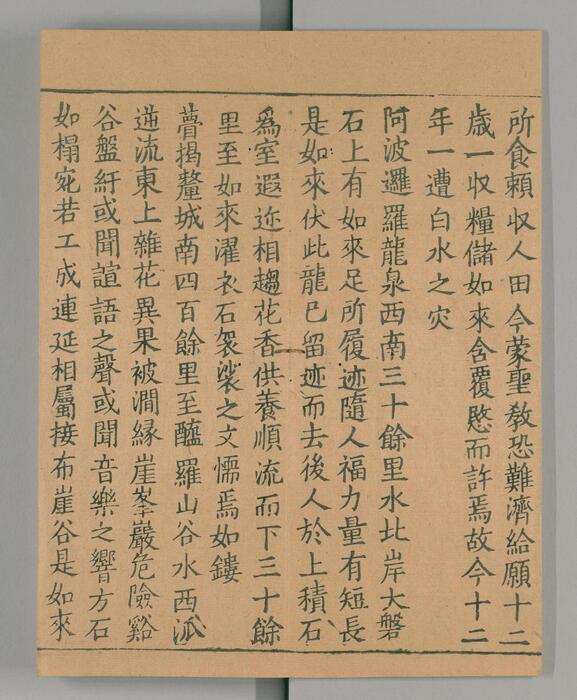 所食頼収人田今蒙聖敎恐難濟給願十二
歳一収糧儲如來含覆愍而許焉故今十二
年一遭白水之灾
阿波邏羅龍泉西南三十餘里水北岸大磐
石上有如來足所履迹隨人福力量有短長
是如來伏此龍已留迹而去後人於上積石
爲室遐迩相趨花香供養順流而下三十餘
里至如來濯衣石袈裟之文㦬焉如鏤
瞢揭釐城南四百餘里至醯羅山谷水西派
逆流東上雜花異果被澗緣崖峯巖危險谿
谷盤紆或聞諠語之聲或聞音樂之響方石
如榻宛若工成連延相屬接布崖谷是如來